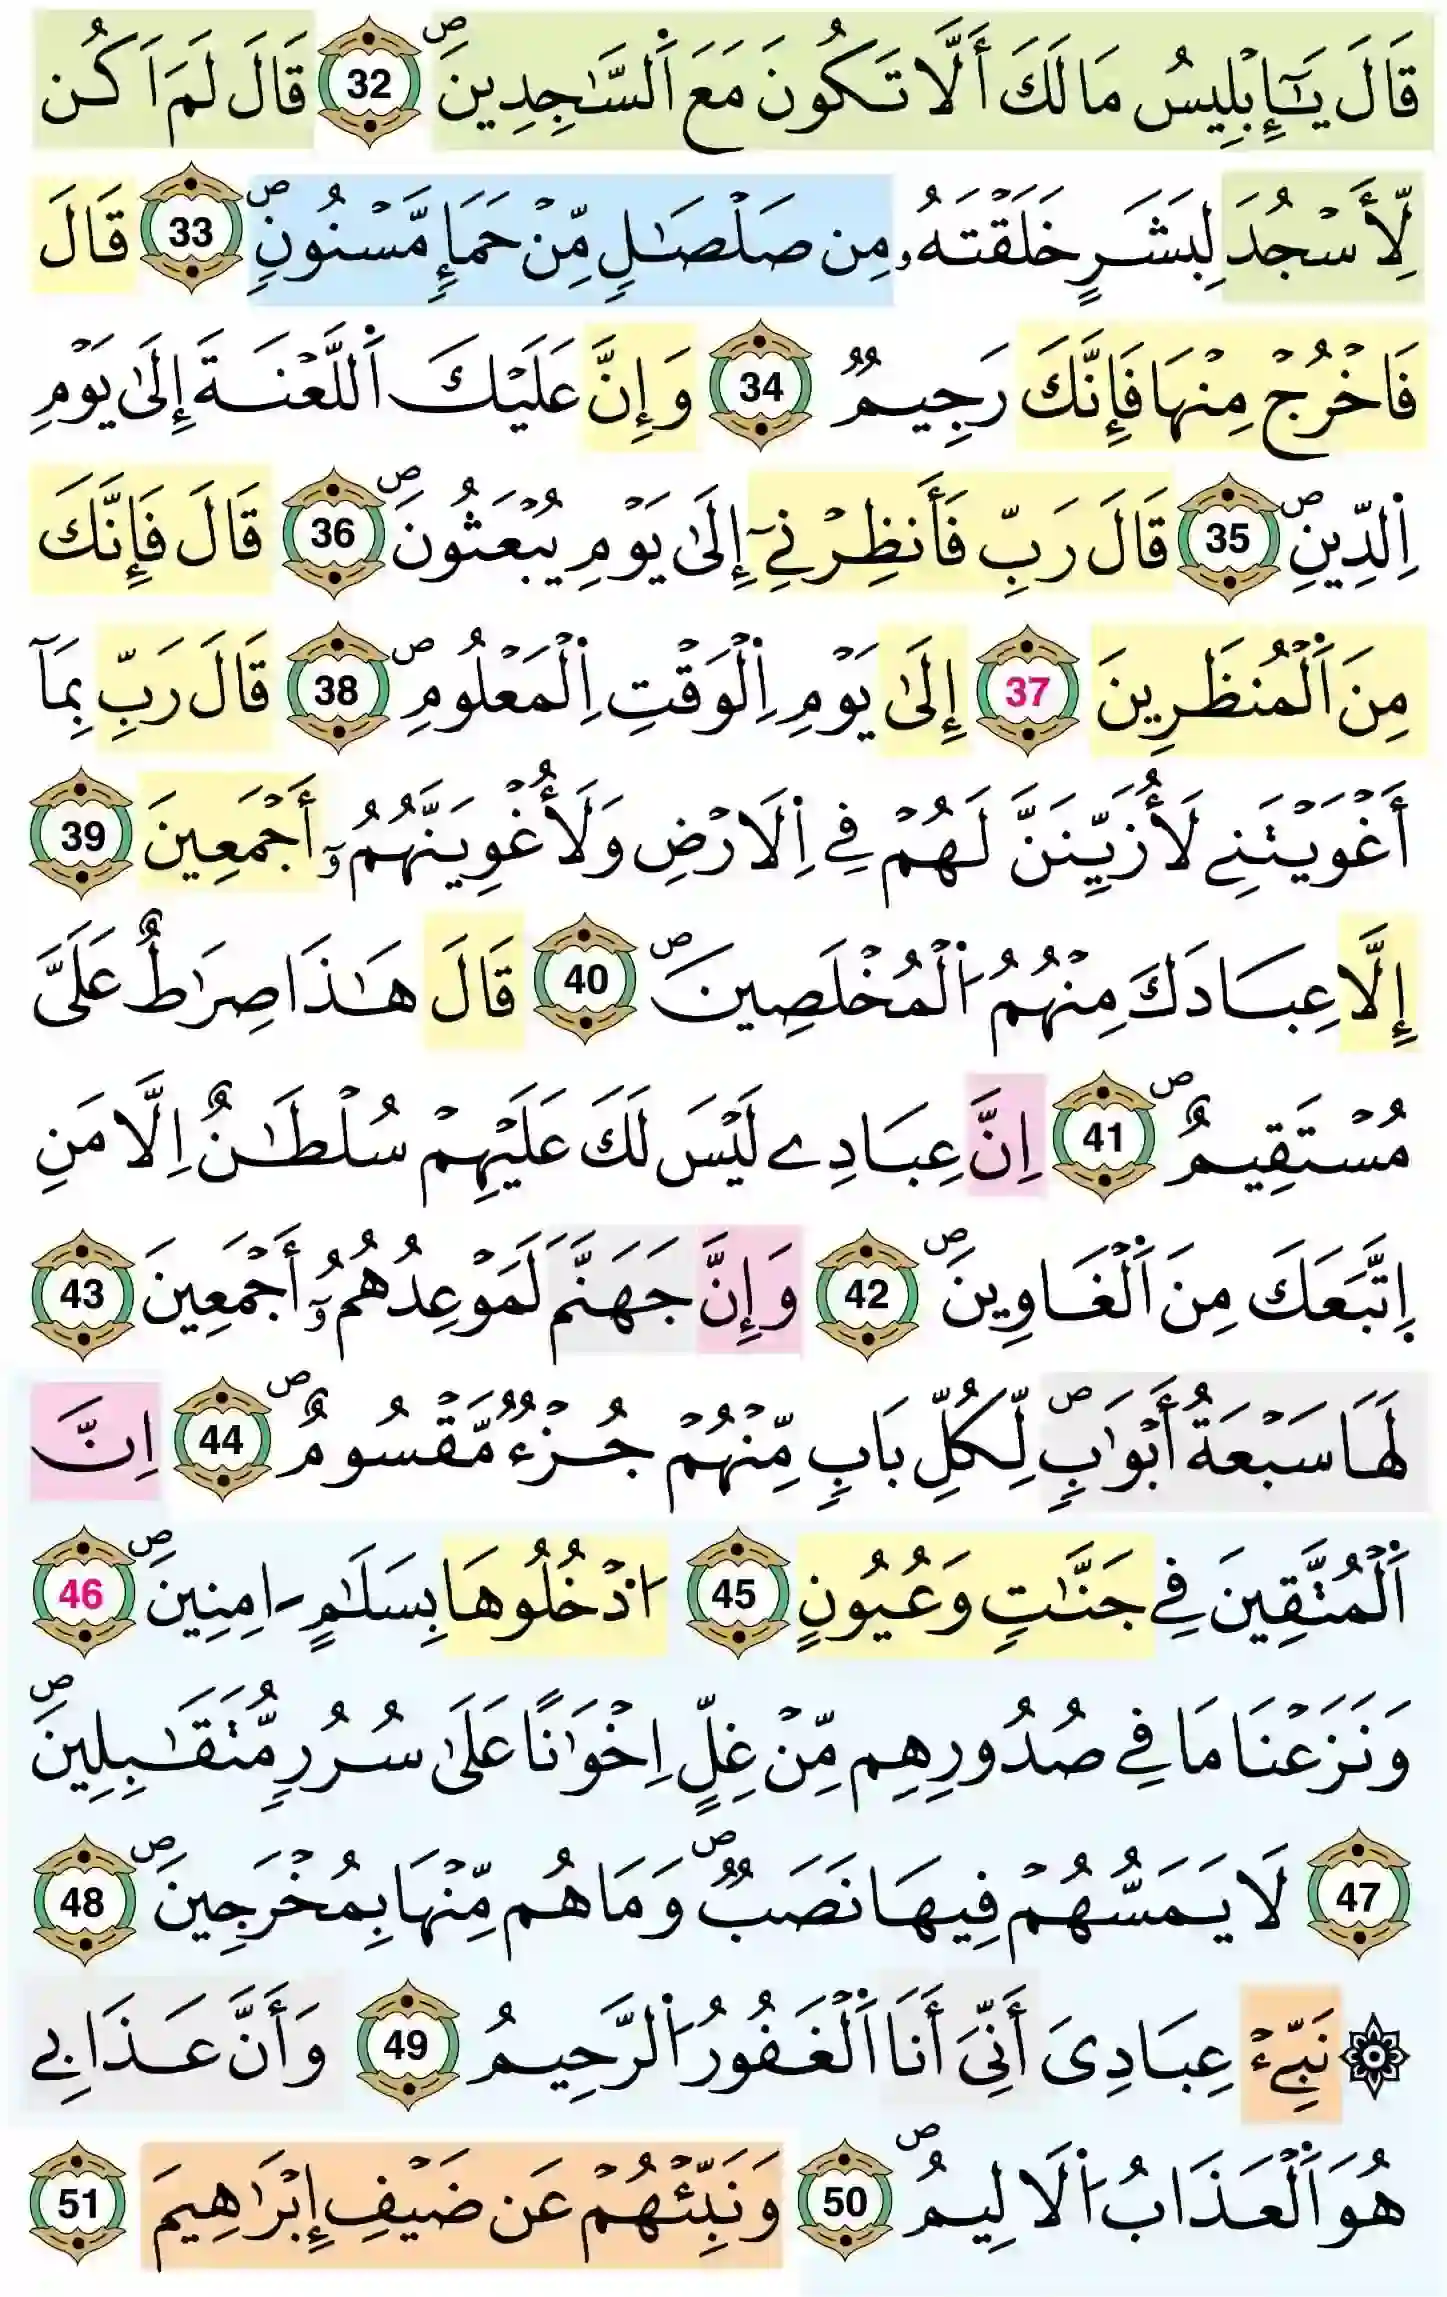 قَالَ يَٰٓإِبْلِيسُ مَا لَكَ أَلَّا تَكُونَ مَعَ اَ۬لسَّٰجِدِينَۖ 32 قَالَ لَمَ اَكُن
لِّأَسْجُدَ لِبَشَرٍ خَلَقْتَهُۥ مِن صَلْصَٰلٍ مِّنْ حَمَإٍ مَّسْنُونٍۖ 33 قَالَ
فَاخْرُجْ مِنْهَا فَإِنَّكَ رَجِيمٌ 34 وَإِنَّ عَلَيْكَ اَ۬للَّعْنَةَ إِلَىٰ يَوْمِ
اِ۬لدِّينِۖ 35 قَالَ رَبِّ فَأَنظِرْنِےٓ إِلَىٰ يَوْمِ يُبْعَثُونَۖ 36 قَالَ فَإِنَّكَ
مِنَ اَ۬لْمُنظَرِينَ 37 إِلَىٰ يَوْمِ اِ۬لْوَقْتِ اِ۬لْمَعْلُومِۖ 38 قَالَ رَبِّ بِمَآ
أَغْوَيْتَنِے لَأُزَيِّنَنَّ لَهُمْ فِے اِ۬لَارْضِ وَلَأُغْوِيَنَّهُمُۥٓ أَجْمَعِينَ 39
إِلَّا عِبَادَكَ مِنْهُمُ اُ۬لْمُخْلَصِينَۖ 40 قَالَ هَٰذَا صِرَٰطٌ عَلَيَّ
مُسْتَقِيمٌۖ 41 اِنَّ عِبَادِے لَيْسَ لَكَ عَلَيْهِمْ سُلْطَٰنٌ اِلَّا مَنِ
اِ۪تَّبَعَكَ مِنَ اَ۬لْغَاوِينَۖ 42 وَإِنَّ جَهَنَّمَ لَمَوْعِدُهُمُۥٓ أَجْمَعِينَ 43
لَهَا سَبْعَةُ أَبْوَٰبٍۖ لِّكُلِّ بَابٍ مِّنْهُمْ جُزْءٌ مَّقْسُومٌۖ 44 اِنَّ
اَ۬لْمُتَّقِينَ فِے جَنَّٰتٍ وَعُيُونٍ 45 اُ۟دْخُلُوهَا بِسَلَٰمٍ اٰمِنِينَۖ 46
وَنَزَعْنَا مَا فِے صُدُورِهِم مِّنْ غِلٍّ اِخْوَٰناً عَلَىٰ سُرُرٍ مُّتَقَٰبِلِينَۖ
47 لَا يَمَسُّهُمْ فِيهَا نَصَبٌۖ وَمَا هُم مِّنْهَا بِمُخْرَجِينَۖ 48
۞ نَبِّۓْ عِبَادِيَ أَنِّيَ أَنَا اَ۬لْغَفُورُ اُ۬لرَّحِيمُ 49 وَأَنَّ عَذَابِے
هُوَ اَ۬لْعَذَابُ اُ۬لَالِيمُۖ 50 وَنَبِّئْهُمْ عَن ضَيْفِ إِبْرَٰهِيمَ 51